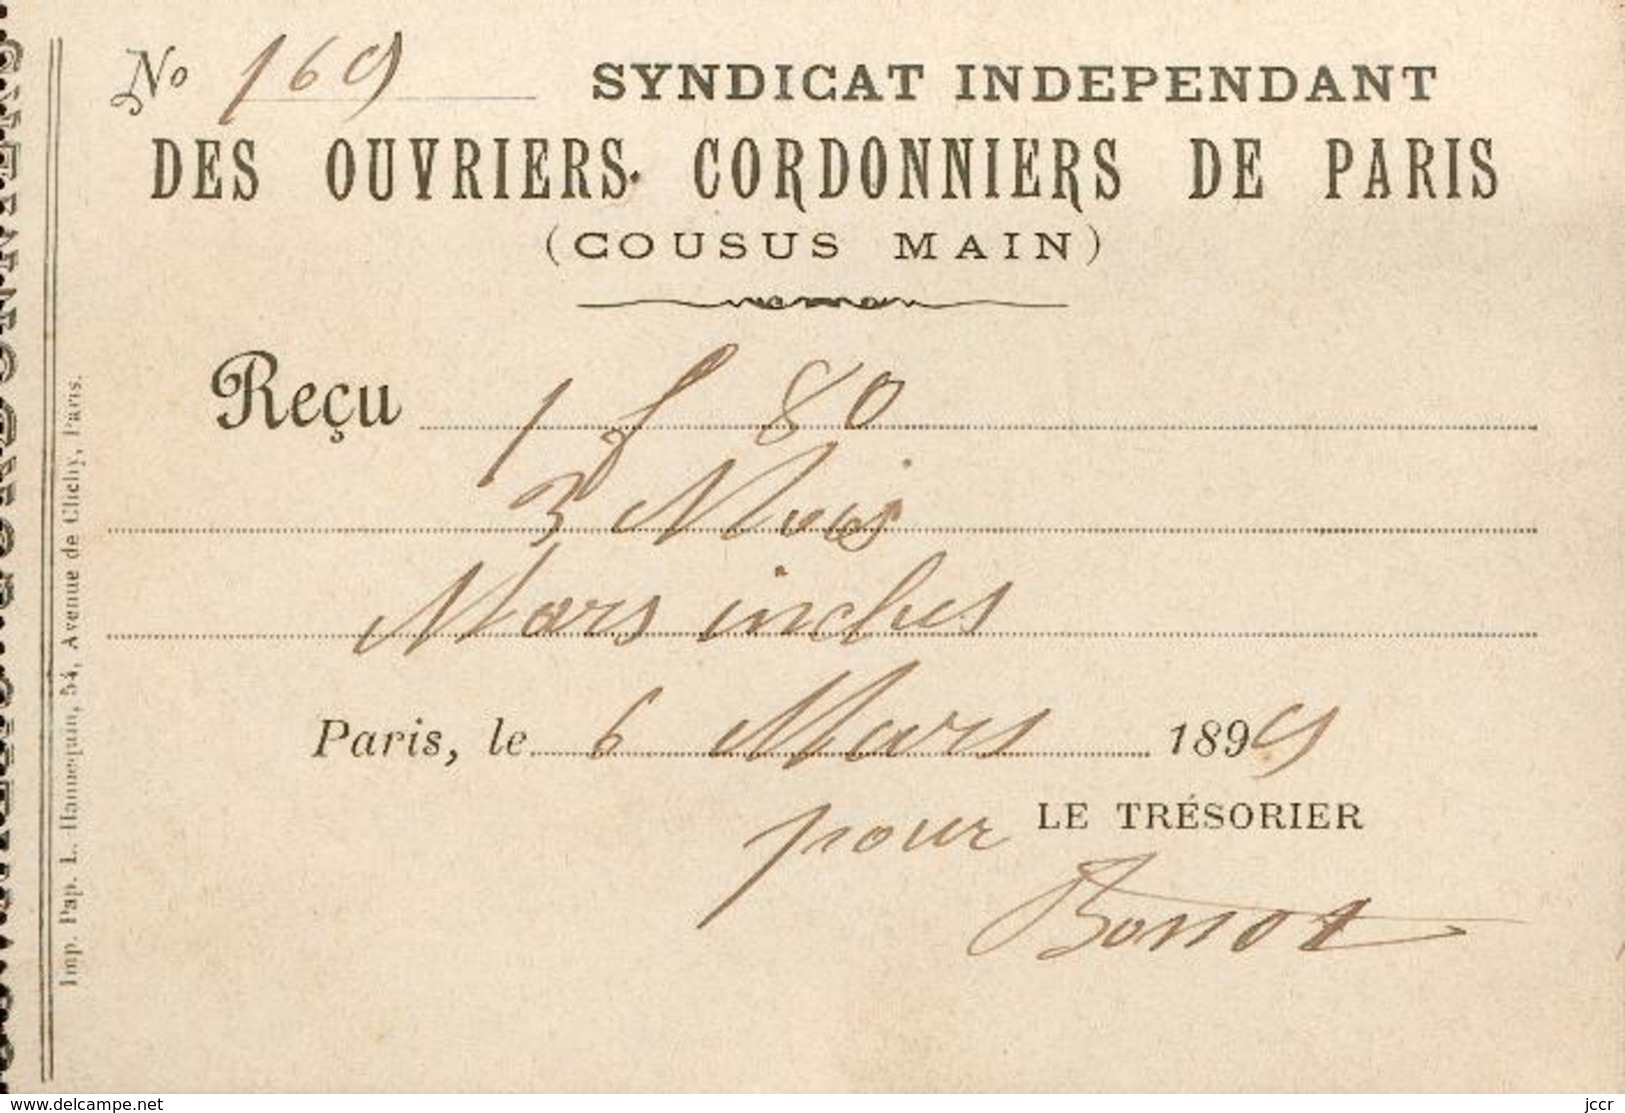 No 169 SYNDICAT INDEPENDANT
DES OUVRIERS CORDONNIERS DE PARIS
(COUSUS MAIN)
Reçu 1 f 80
3 Mois
Mars inclus
Paris, le 6 Mars 1899
pour LE TRÉSORIER
Bonnot
Imp. Pap. L. Hannequin, 54, Avenue de Clichy, Paris.
www.delcampe.net
jccr